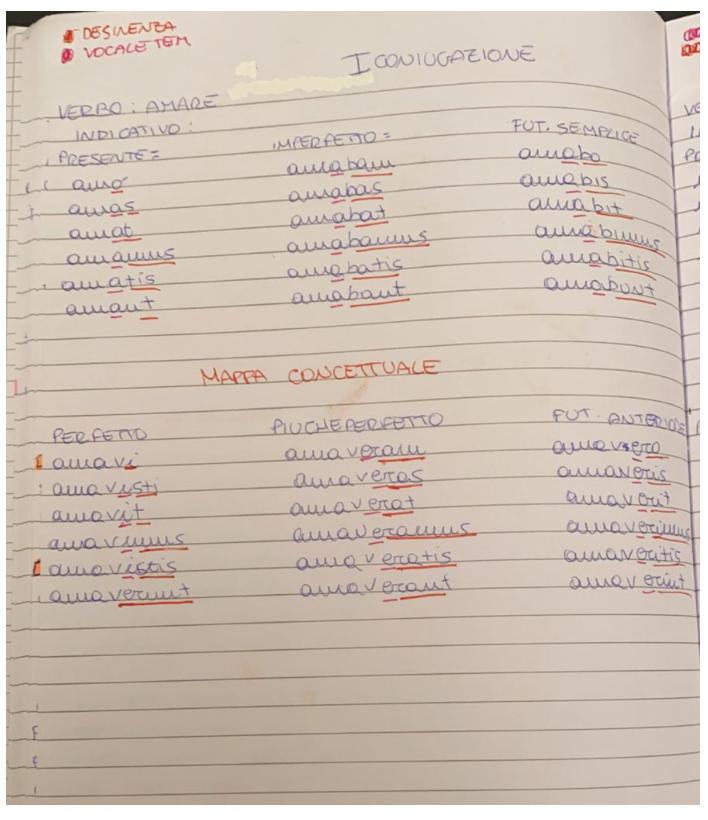 DESINENZA
VOCALE TEM
I CONIUGAZIONE
VERBO: AMARE
INDICATIVO:
PRESENTE= IMPERFETTO= FUT. SEMPLICE
amo amabam amabo
amas amabas amabis
amat amabat amabit
amamus amabamus amabimus
amatis amabatis amabitis
amant amabant amabunt
MAPPA CONCETTUALE
PERFETTO PIUCHEPERFETTO FUT. ANTERIORE
amavi amaveram amavero
amavisti amaveras amaveris
amavit amaverat amaverit
amavimus amaveramus amaverimus
amavistis amaveratis amaveritis
amaverunt amaverant amaverint